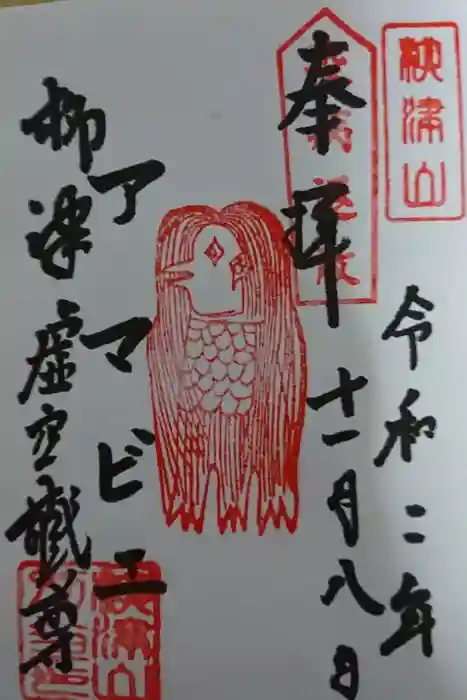 秧津山
奉拝
令和二年
十一月八日
アマビエ
柳津虚空蔵尊